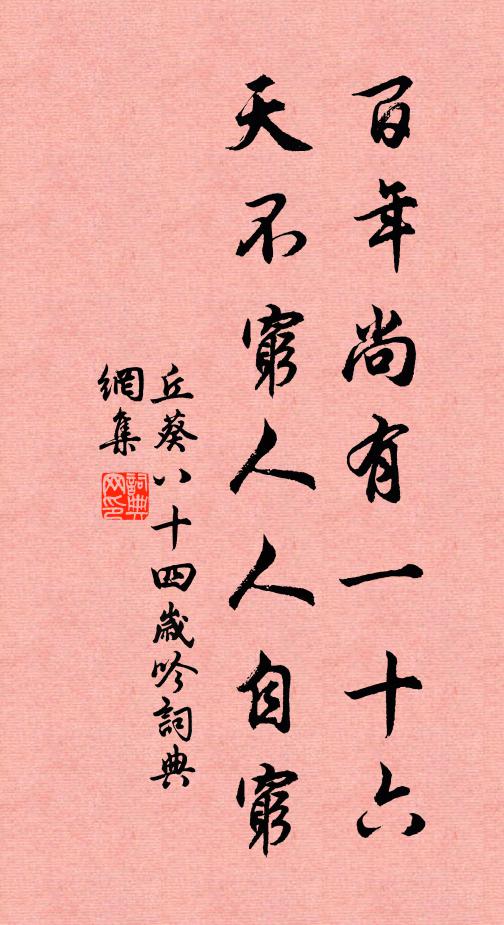 百年尚有一十六
天不窮人人自窮
丘葵八十四歲吟詞典
網集
詞典
网印